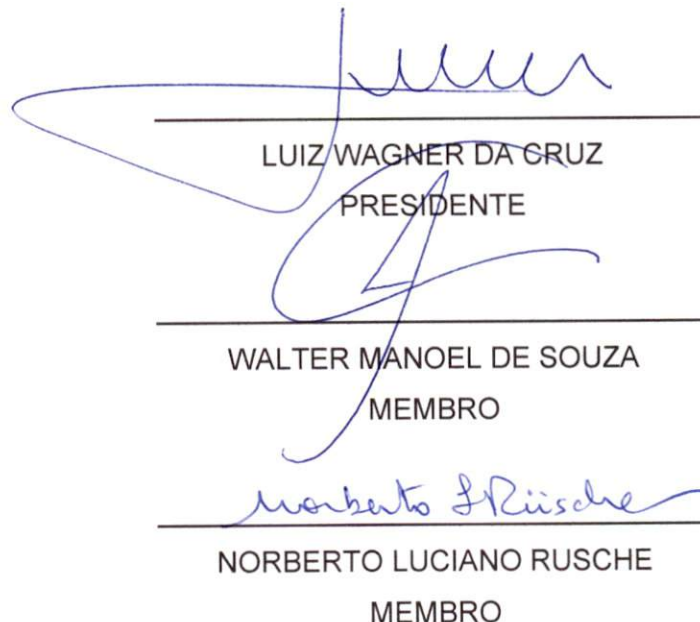 LUIZ WAGNER DA CRUZ
PRESIDENTE
WALTER MANOEL DE SOUZA
MEMBRO
Norberto L Rüsche
NORBERTO LUCIANO RUSCHE
MEMBRO